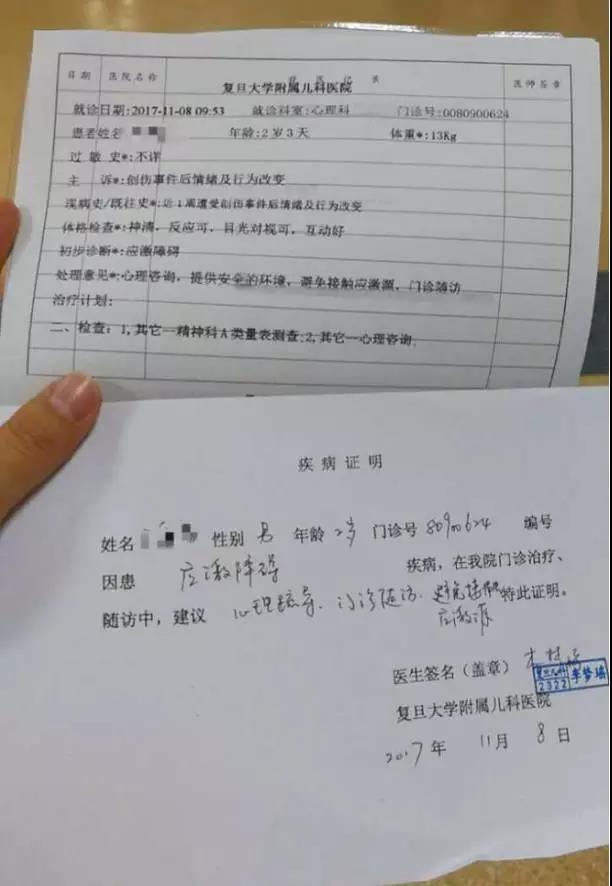 日期 医院名称 医师签章
复旦大学附属儿科医院
就诊日期:2017-11-08 09:53 就诊科室:心理科 门诊号:0080900624
患者姓名 年龄:2岁3天 体重*:13Kg
过敏史*:不详
主 诉*:创伤事件后情绪及行为改变
现病史/既往史*:近1周遭受创伤事件后情绪及行为改变
体格检查*:神清，反应可，目光对视可，互动好
初步诊断*:应激障碍
处理意见*:心理咨询，提供安全的环境，避免接触应激源，门诊随访
治疗计划:
二、检查：1,其它--精神科A类量表测查;2,其它--心理咨询;
疾病证明
姓名 性别 男 年龄 2岁 门诊号 80900624 编号
因患 应激障碍 疾病，在我院门诊治疗、
随访中，建议 心理疏导、门诊随访、避免接触 特此证明。
应激源
医生签名（盖章）
2322
复旦大学附属儿科医院
2017 年 11 月 8 日